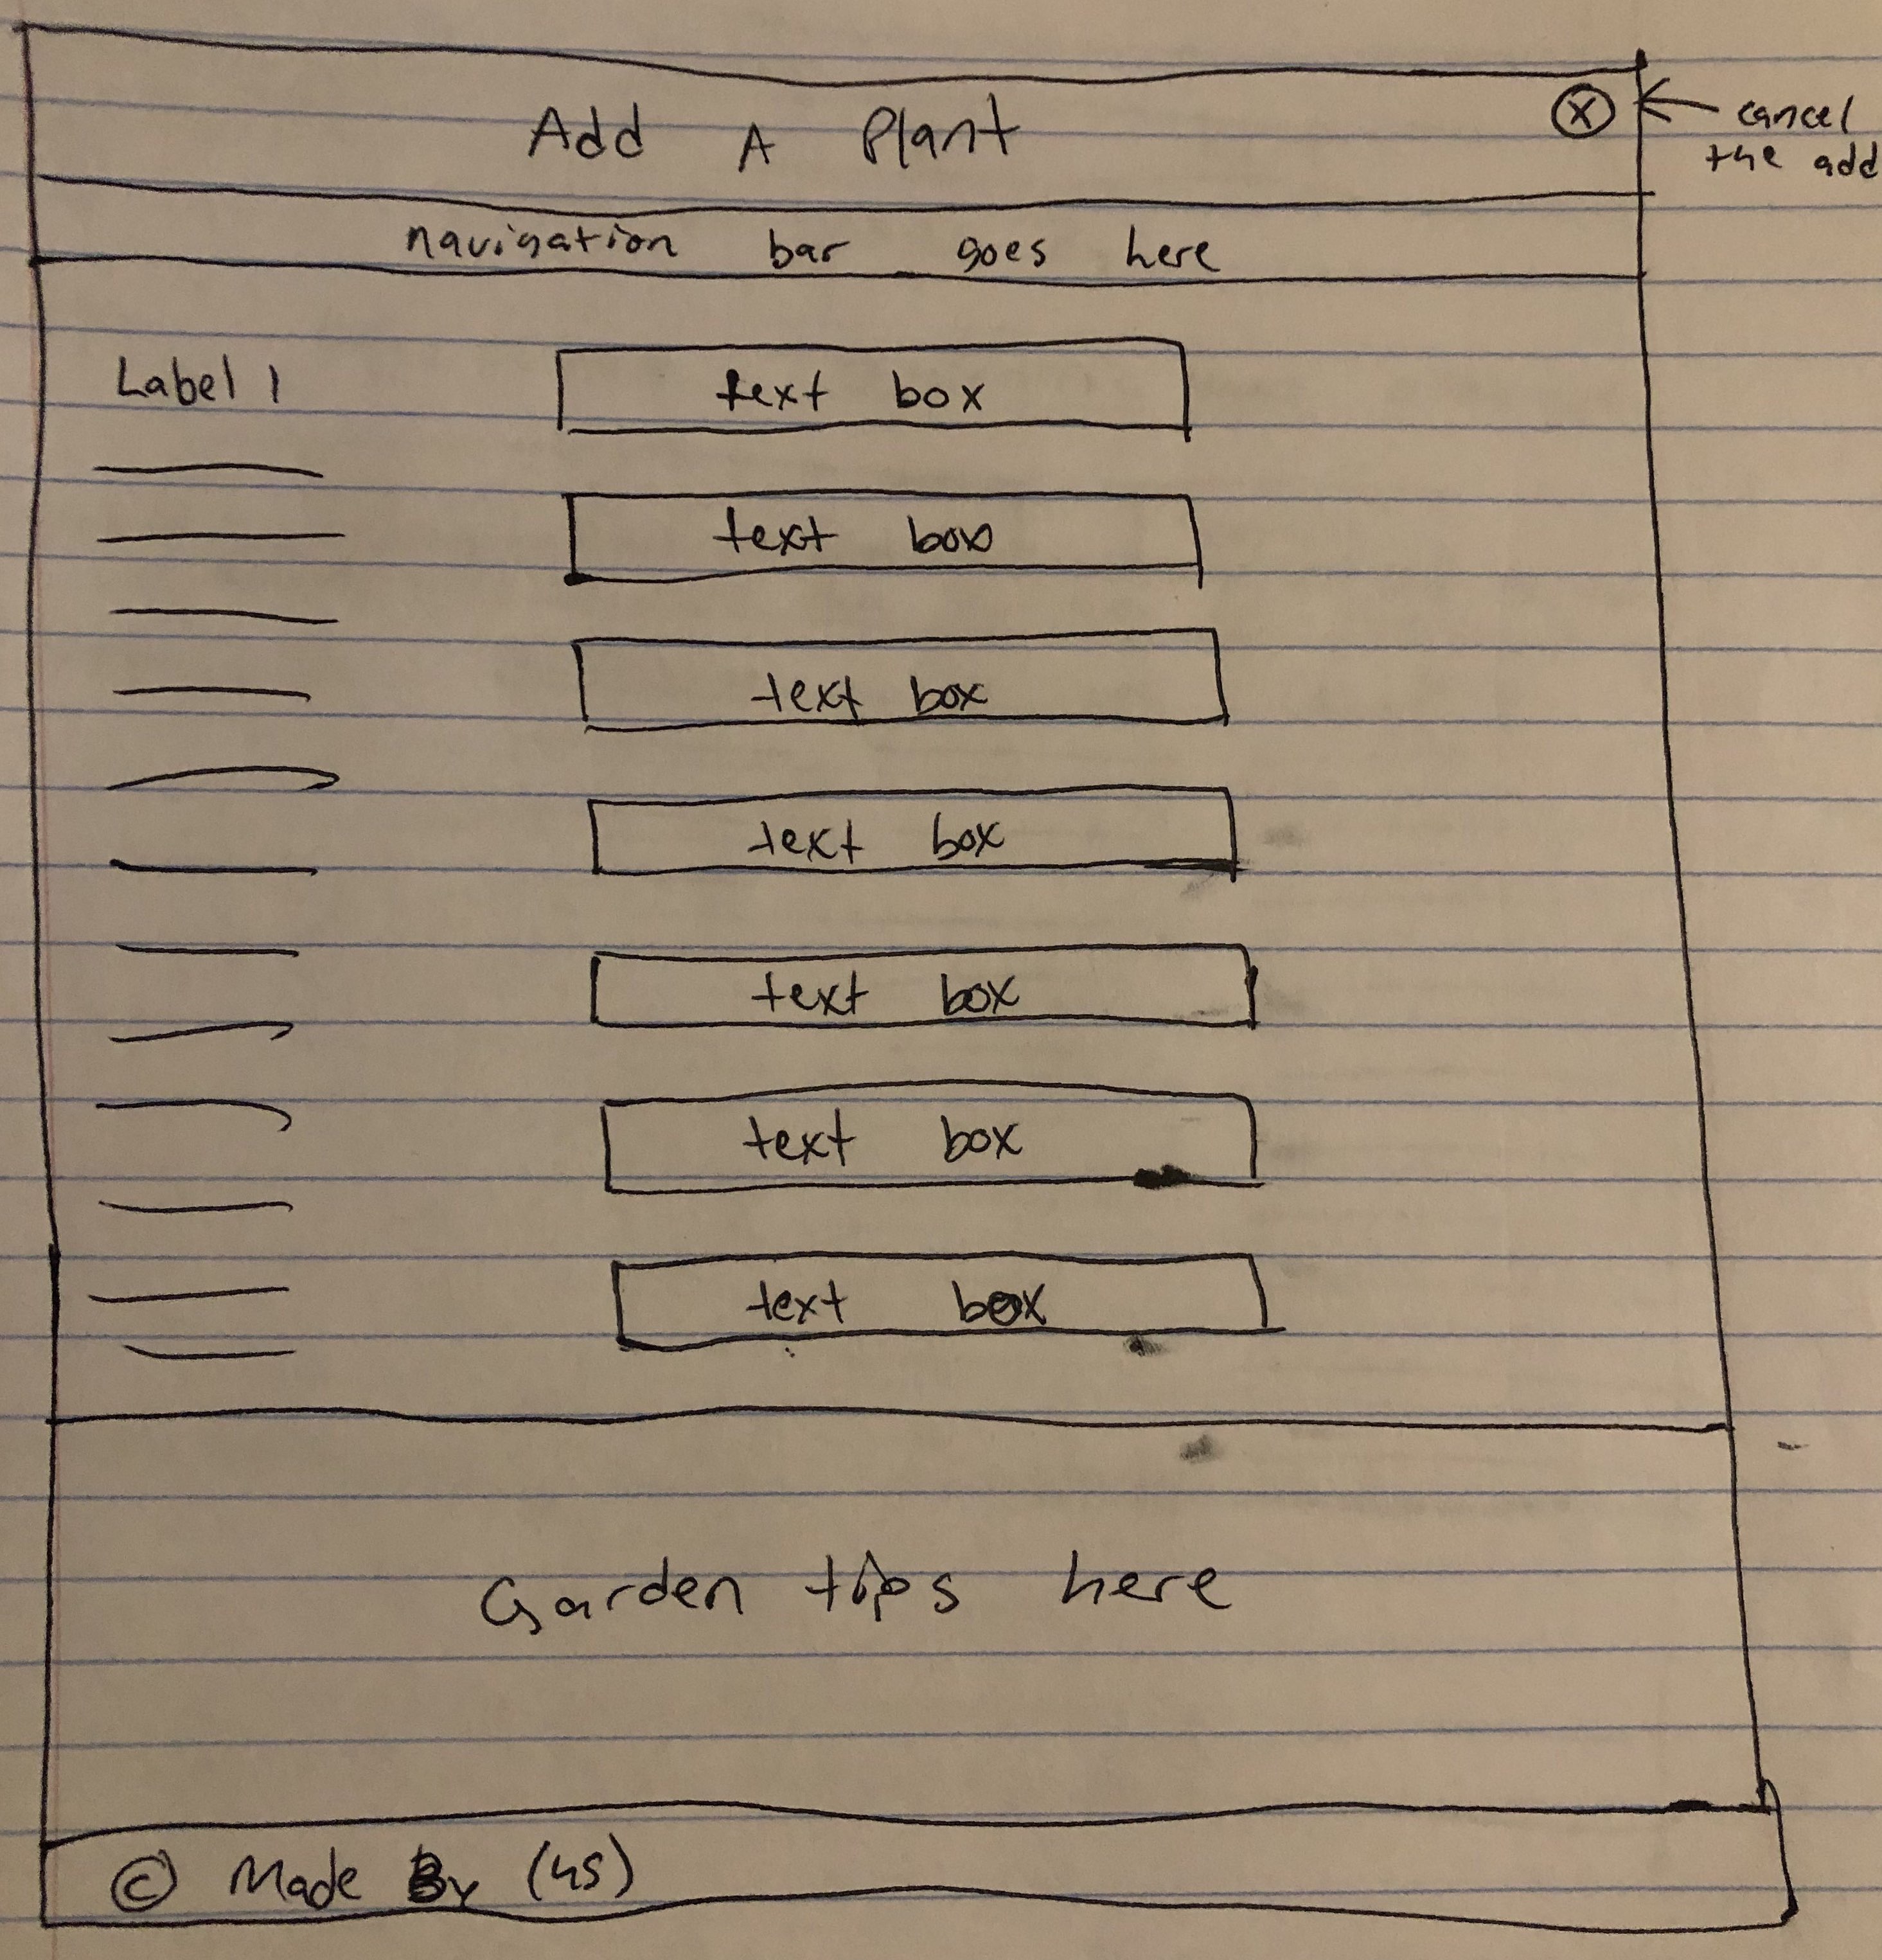 Add A Plant
X
cancel
the add
navigation bar goes here
Label 1
text box
text box
text box
text box
text box
text box
text box
Garden tips here
© Made By